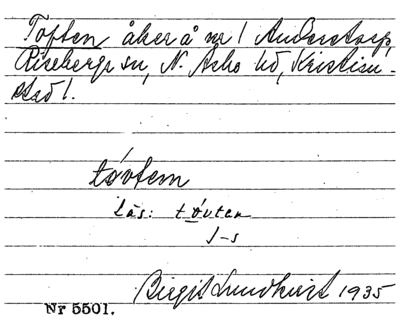 Toften åker å nr 1 Anderstorp,
Riseberga sn, N. Åsbo hd, Kristian-
stad l.
tóvtem
Läs: tóvten
J-s
Birgit Lundkvist 1935
Nr 5501.